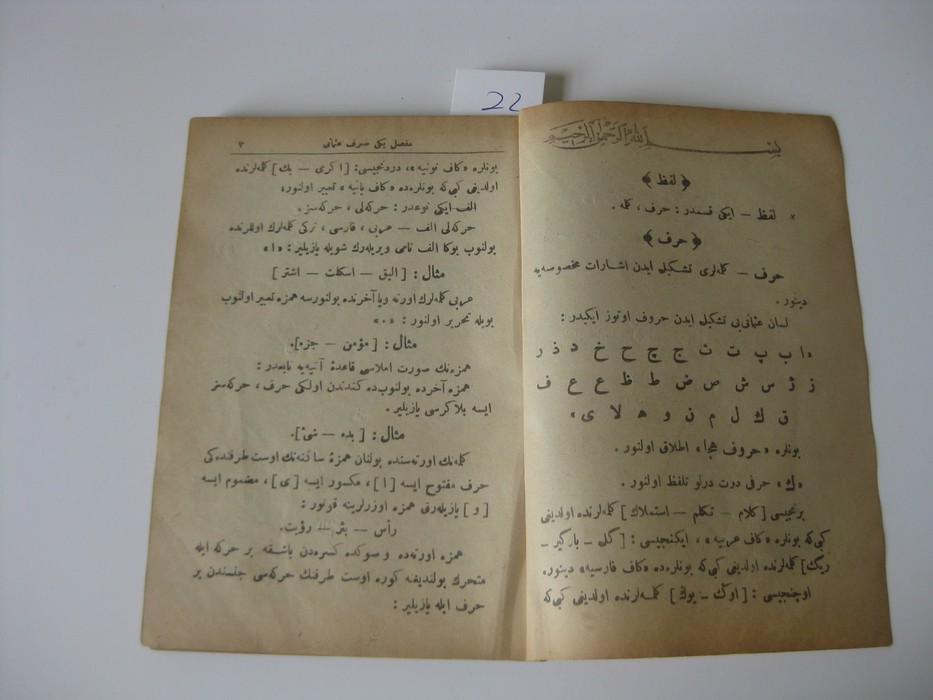 22
بسم الله الرحمن الرحيم
﴿ لفظ ﴾
لفظ — ایکی قسمدر : حرف ، کلمه .
﴿ حرف ﴾
حرف — کلمه‌لری تشکیل ایدن اشارات مخصوصه‌یه
دینور .
لسان عثمانی‌یی تشکیل ایدن حروف اوتوز ایکیدر :
«ا ب پ ت ث ج چ ح خ د ذ ر
ز ژ س ش ص ض ط ظ ع غ ف
ق ك ل م ن و ه لا ی»
بونلره «حروف هجا» اطلاق اولنور .
«ك» حرفی درت درلو تلفظ اولنور .
برنجیسی [ کلام — تکلم — استملاك ] کلمه‌لرنده اولدیغی
کبی‌که بونلره «کاف عربیه» ، ایکنجیسی : [ گل — بارگیر —
ریگ ] کلمه‌لرنده اولدیغی کبی‌که بونلره‌ده «کاف فارسیه» دینور.
اوچنجیسی : [ اوڭ — یوڭ ] کلمه‌لرنده اولدیغی کبی‌که
مفصل یکی صرف عثمانی ٣
بونلره «کاف نونیه» ، دردنجیسی: [ اکری — بك ] کلمه‌لرنده
اولدیغی کبی‌که بونلره‌ده «کاف یائیه» تعبیر اولنور.
الف ایکی نوعدر : حرکه‌لی ، حرکه‌سز .
حرکه‌لی الف — عربی ، فارسی ، ترکی کلمه‌لرك اوللرنده
بولنوب بوکا الف نامی ویریله‌رك شویله یازیلیر : «ا»
مثال : [ البق — اسکلت — اشتر ]
عربی کلمه‌لرك اورته ویا آخرنده بولنورسه همزه تعبیر اولنوب
بویله تحریر اولنور : «ء»
مثال : [ مؤمن — جزء ].
همزه‌نك صورت املاسی قاعدهٔ آتیه‌یه تابعدر :
همزه آخرده بولنوب‌ده کندندن اولکی حرف ، حرکه‌سز
ایسه بلا کرسی یازیلیر .
مثال : [ بدء — شیء ].
کلمه‌نك اورته‌سنده بولنان همزهٔ ساکنه‌نك اوست طرفنده‌کی
حرف مفتوح ایسه [ ا ] ، مکسور ایسه [ ی ] ، مضموم ایسه
[ و ] یازیله‌رق همزه اوزرلرینه قونور :
رأس — بئر — رؤیت.
همزه اورته‌ده و سوکده کسره‌دن باشقه بر حرکه ایله
متحرك بولندیغنه کوره اوست طرفنك حرکه‌سی جنسندن بر
حرف ایله یازیلیر :